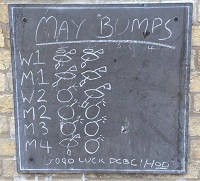 MAY BUMPS
1 2 3 4
W1
M1
W2
M2
M3
M4
GOOD LUCK DCBC! HOD